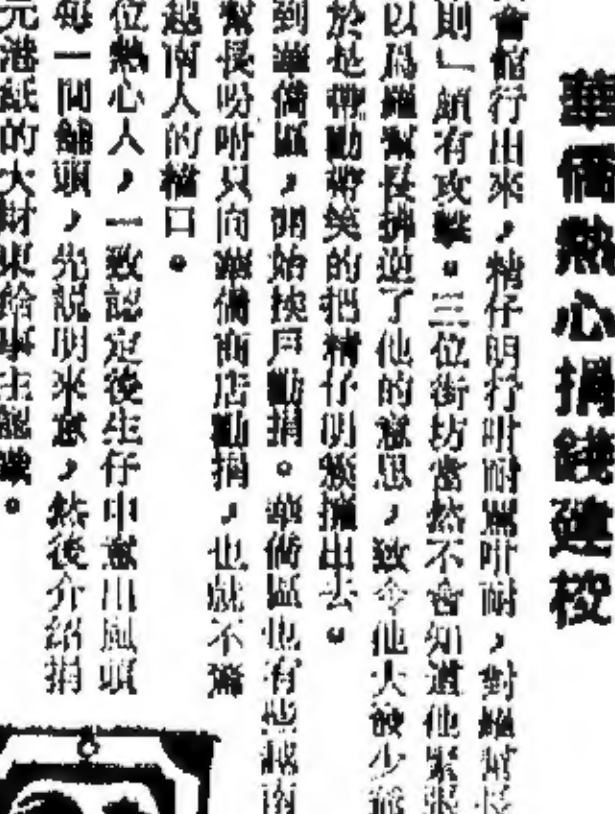 華僑熱心捐錢建校
會館行出來，精仔明行咁耐罵咁耐，對羅幫長
則」頗有攻擊。三位街坊當然不會知道他緊張
以爲羅幫長拂逆了他的意思，致令他大發少爺
於是帶笑的把精仔明簇擁出去。
到華僑區，開始挨戶勸捐。華僑區也有些越南
幫長吩咐只向華僑商店勸捐，也就不
越南人的檔口。
位熱心人，一致認定後生仔中意出風頭
每一間舖頭，先説明來意，然後介紹捐
元港紙的大財東給事主認識。